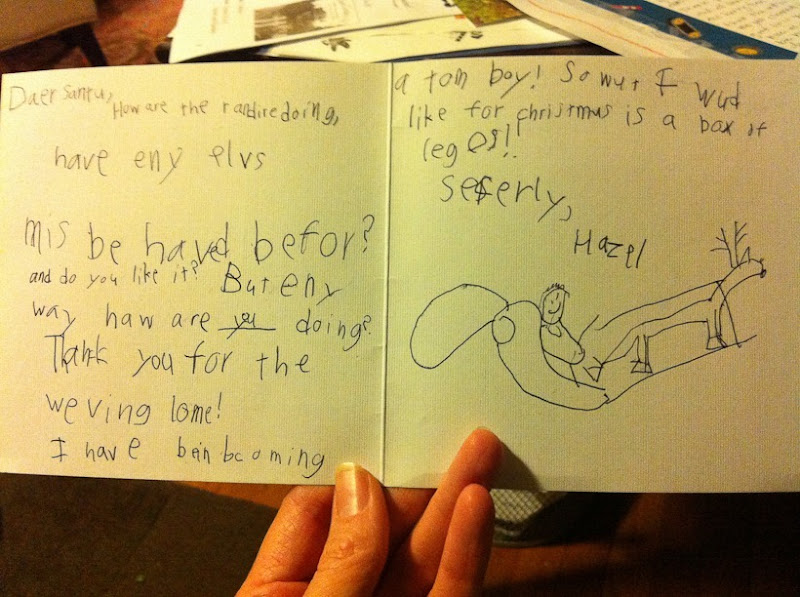 Daer Santu,
How are the randire doing,
have eny elvs
mis be haved befor?
and do you like it? But eny
way haw are you doing?
Thank you for the
weving lome!
I have bein becoming
a tom boy! So wut I wud
like for christmas is a box of
legos!!
Seserly,
Hazel